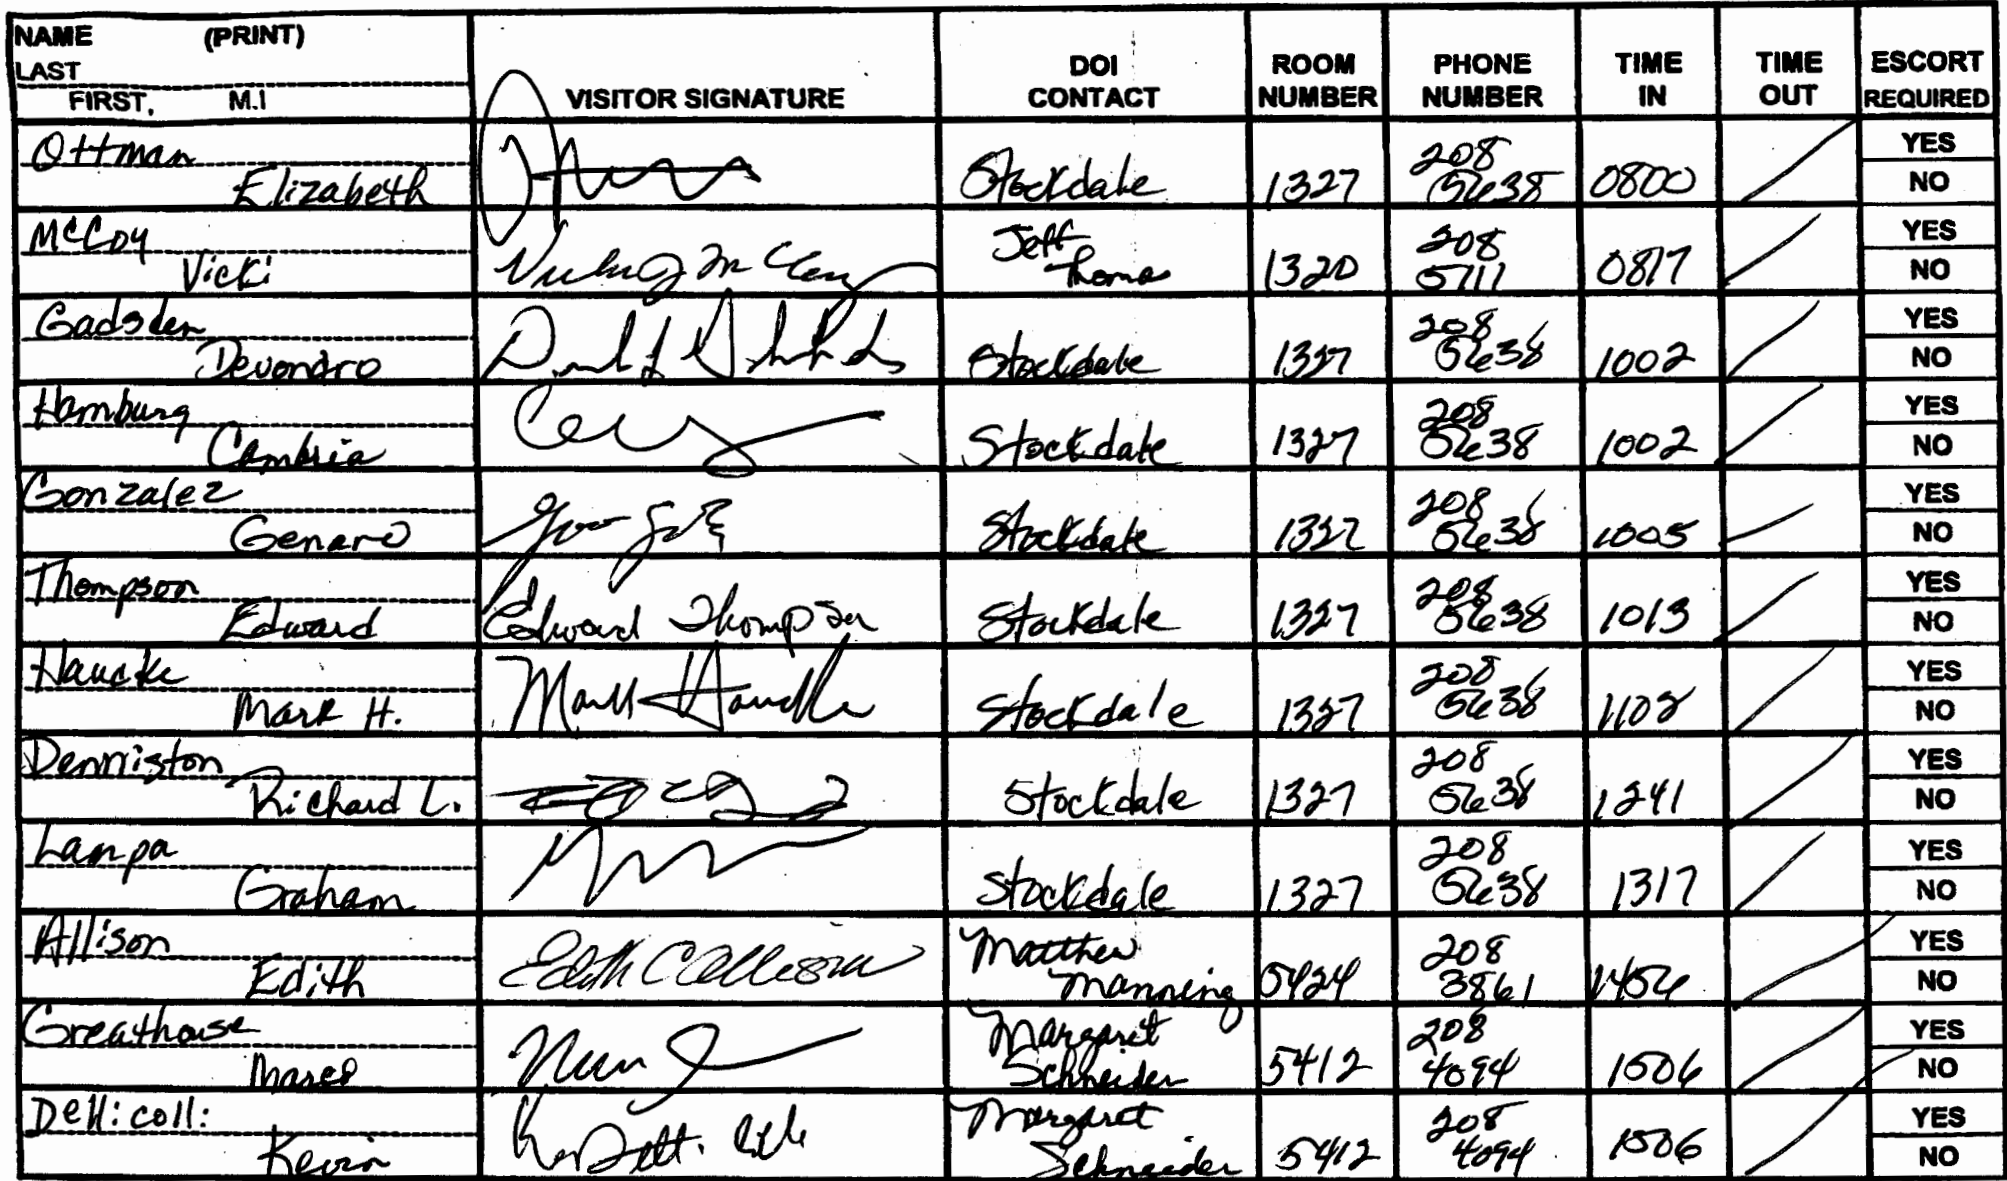 NAME (PRINT)
LAST
FIRST, M.I
VISITOR SIGNATURE
DOI
CONTACT
ROOM
NUMBER
PHONE
NUMBER
TIME
IN
TIME
OUT
ESCORT
REQUIRED
Ottman
Elizabeth
Stockdale
1327
208
5638
0800
YES
NO
McCoy
Vicki
Jeff
Thomas
1320
208
5711
0817
YES
NO
Gadsden
Devondro
Stockdale
1327
208
5638
1002
YES
NO
Hamburg
Cambria
Stockdale
1327
208
5638
1002
YES
NO
Gonzalez
Genaro
Stockdale
1327
208
5638
1005
YES
NO
Thompson
Edward
Edward Thompson
Stockdale
1327
208
5638
1013
YES
NO
Haucke
Mark H.
Mark Haucke
Stockdale
1327
208
5638
1102
YES
NO
Denniston
Richard L.
Stockdale
1327
208
5638
1241
YES
NO
Lampa
Graham
Stockdale
1327
208
5638
1317
YES
NO
Allison
Edith
Edith C Allison
Matthew
Manning
5424
208
3861
1456
YES
NO
Greathouse
Marco
Margaret
Schneider
5412
208
4094
1506
YES
NO
Detticolli
Kevin
Margaret
Schneider
5412
208
4094
1506
YES
NO